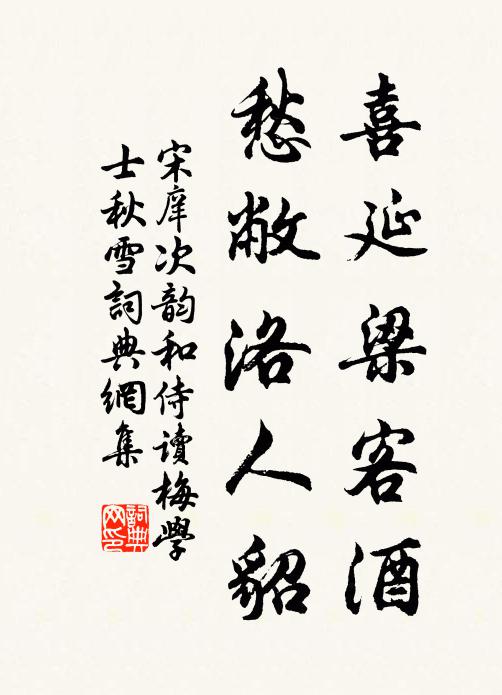 喜延梁客酒
愁敝洛人貂
宋庠次韵和侍讀梅學
士秋雪詞典網集
詞典网印